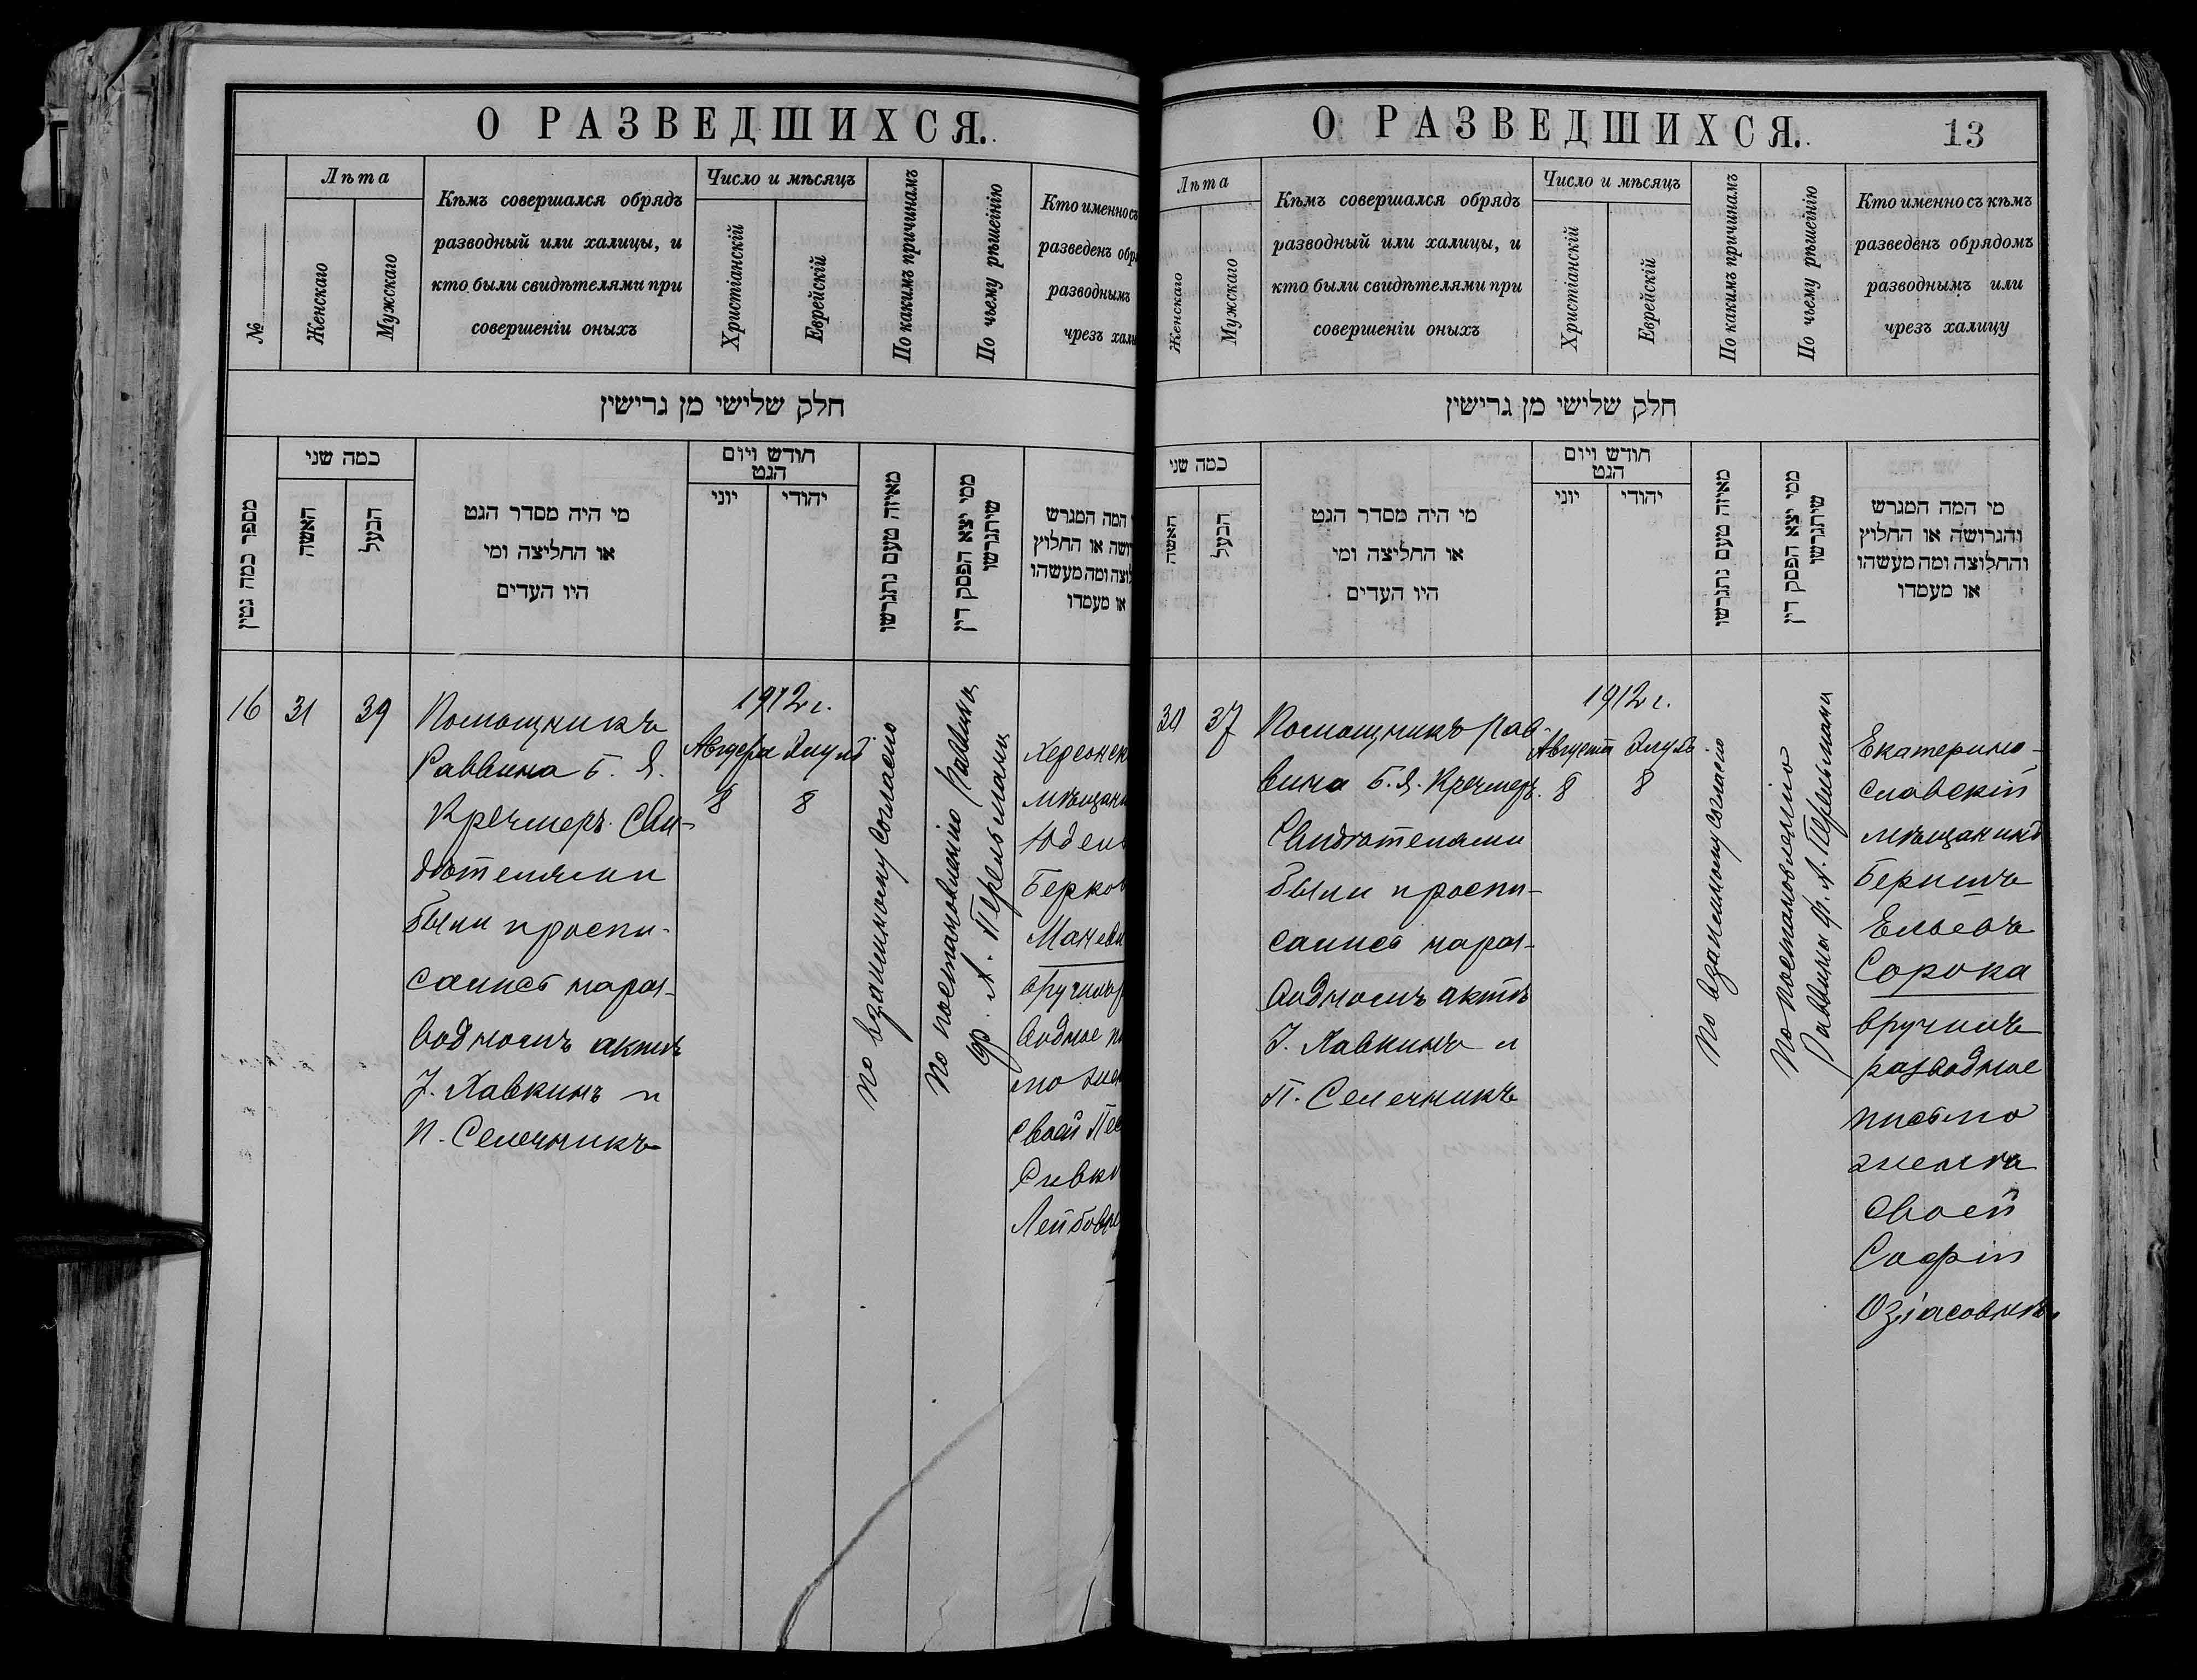 О РАЗВЕДШИХСЯ.
№
Лѣта
Женскаго
Мужскаго
Кѣмъ совершался обрядъ
разводный или халицы, и
кто были свидѣтелями при
совершеніи оныхъ
Число и мѣсяцъ
Христіанскій
Еврейскій
По какимъ причинамъ
По чьему рѣшеінію
Кто именно съ
разведенъ обр
разводнымъ
чрезъ хали
חלק שלישי מן גרישין
מספר כמה גטין
כמה שני
האשה
הבעל
מי היה מסדר הגט
או החליצה ומי
היו העדים
חודש ויום
הגט
יוני
יהודי
מאיזה טעם נתגרשו
ממי יצא הפסק דין
שיתגרשו
המה המגרש
ושה או החלוץ
לוצה ומה מעשהו
או מעמדו
16
31
39
Помощникъ
Раввина Б. Я.
Кречмеръ. Сви-
дѣтелями
были проспи-
сались на раз-
водномъ актѣ
І. Хавкинъ и
П. Селечникъ
1912 г.
Августа Элулъ
8
8
По взаимному согласію
По постановленію Раввина
Ф. А. Перельмана
Херсонск
мѣщани
Юдель
Берков
Маневи
вручилъ р
водное пи
мо жен
своей Пес
Сивк
Лейбовн
О РАЗВЕДШИХСЯ.
13
Лѣта
Женскаго
Мужскаго
Кѣмъ совершался обрядъ
разводный или халицы, и
кто были свидѣтелями при
совершеніи оныхъ
Число и мѣсяцъ
Христіанскій
Еврейскій
По какимъ причинамъ
По чьему рѣшеінію
Кто именно съ кѣмъ
разведенъ обрядомъ
разводнымъ или
чрезъ халицу
חלק שלישי מן גרישין
כמה שני
האשה
הבעל
מי היה מסדר הגט
או החליצה ומי
היו העדים
חודש ויום
הגט
יוני
יהודי
מאיזה טעם נתגרשו
ממי יצא הפסק דין
שיתגרשו
מי המה המגרש
והגרושה או החלוץ
והחלוצה ומה מעשהו
או מעמדו
30
37
Помощникъ Рав-
вина Б. Я. Кречмеръ.
Свидѣтелями
были проспи-
сались на раз-
водномъ актѣ
І. Хавкинъ и
П. Селечникъ
1912 г.
Августа Элулъ
8
8
По взаимному согласію
По постановленію
Раввина Ф. А. Перельмана
Екатерино-
славскій
мѣщанинъ
Беркинъ
Ельевъ
Сорока
вручилъ
разводное
письмо
женѣ
своей
Софіи
Озіасовнѣ